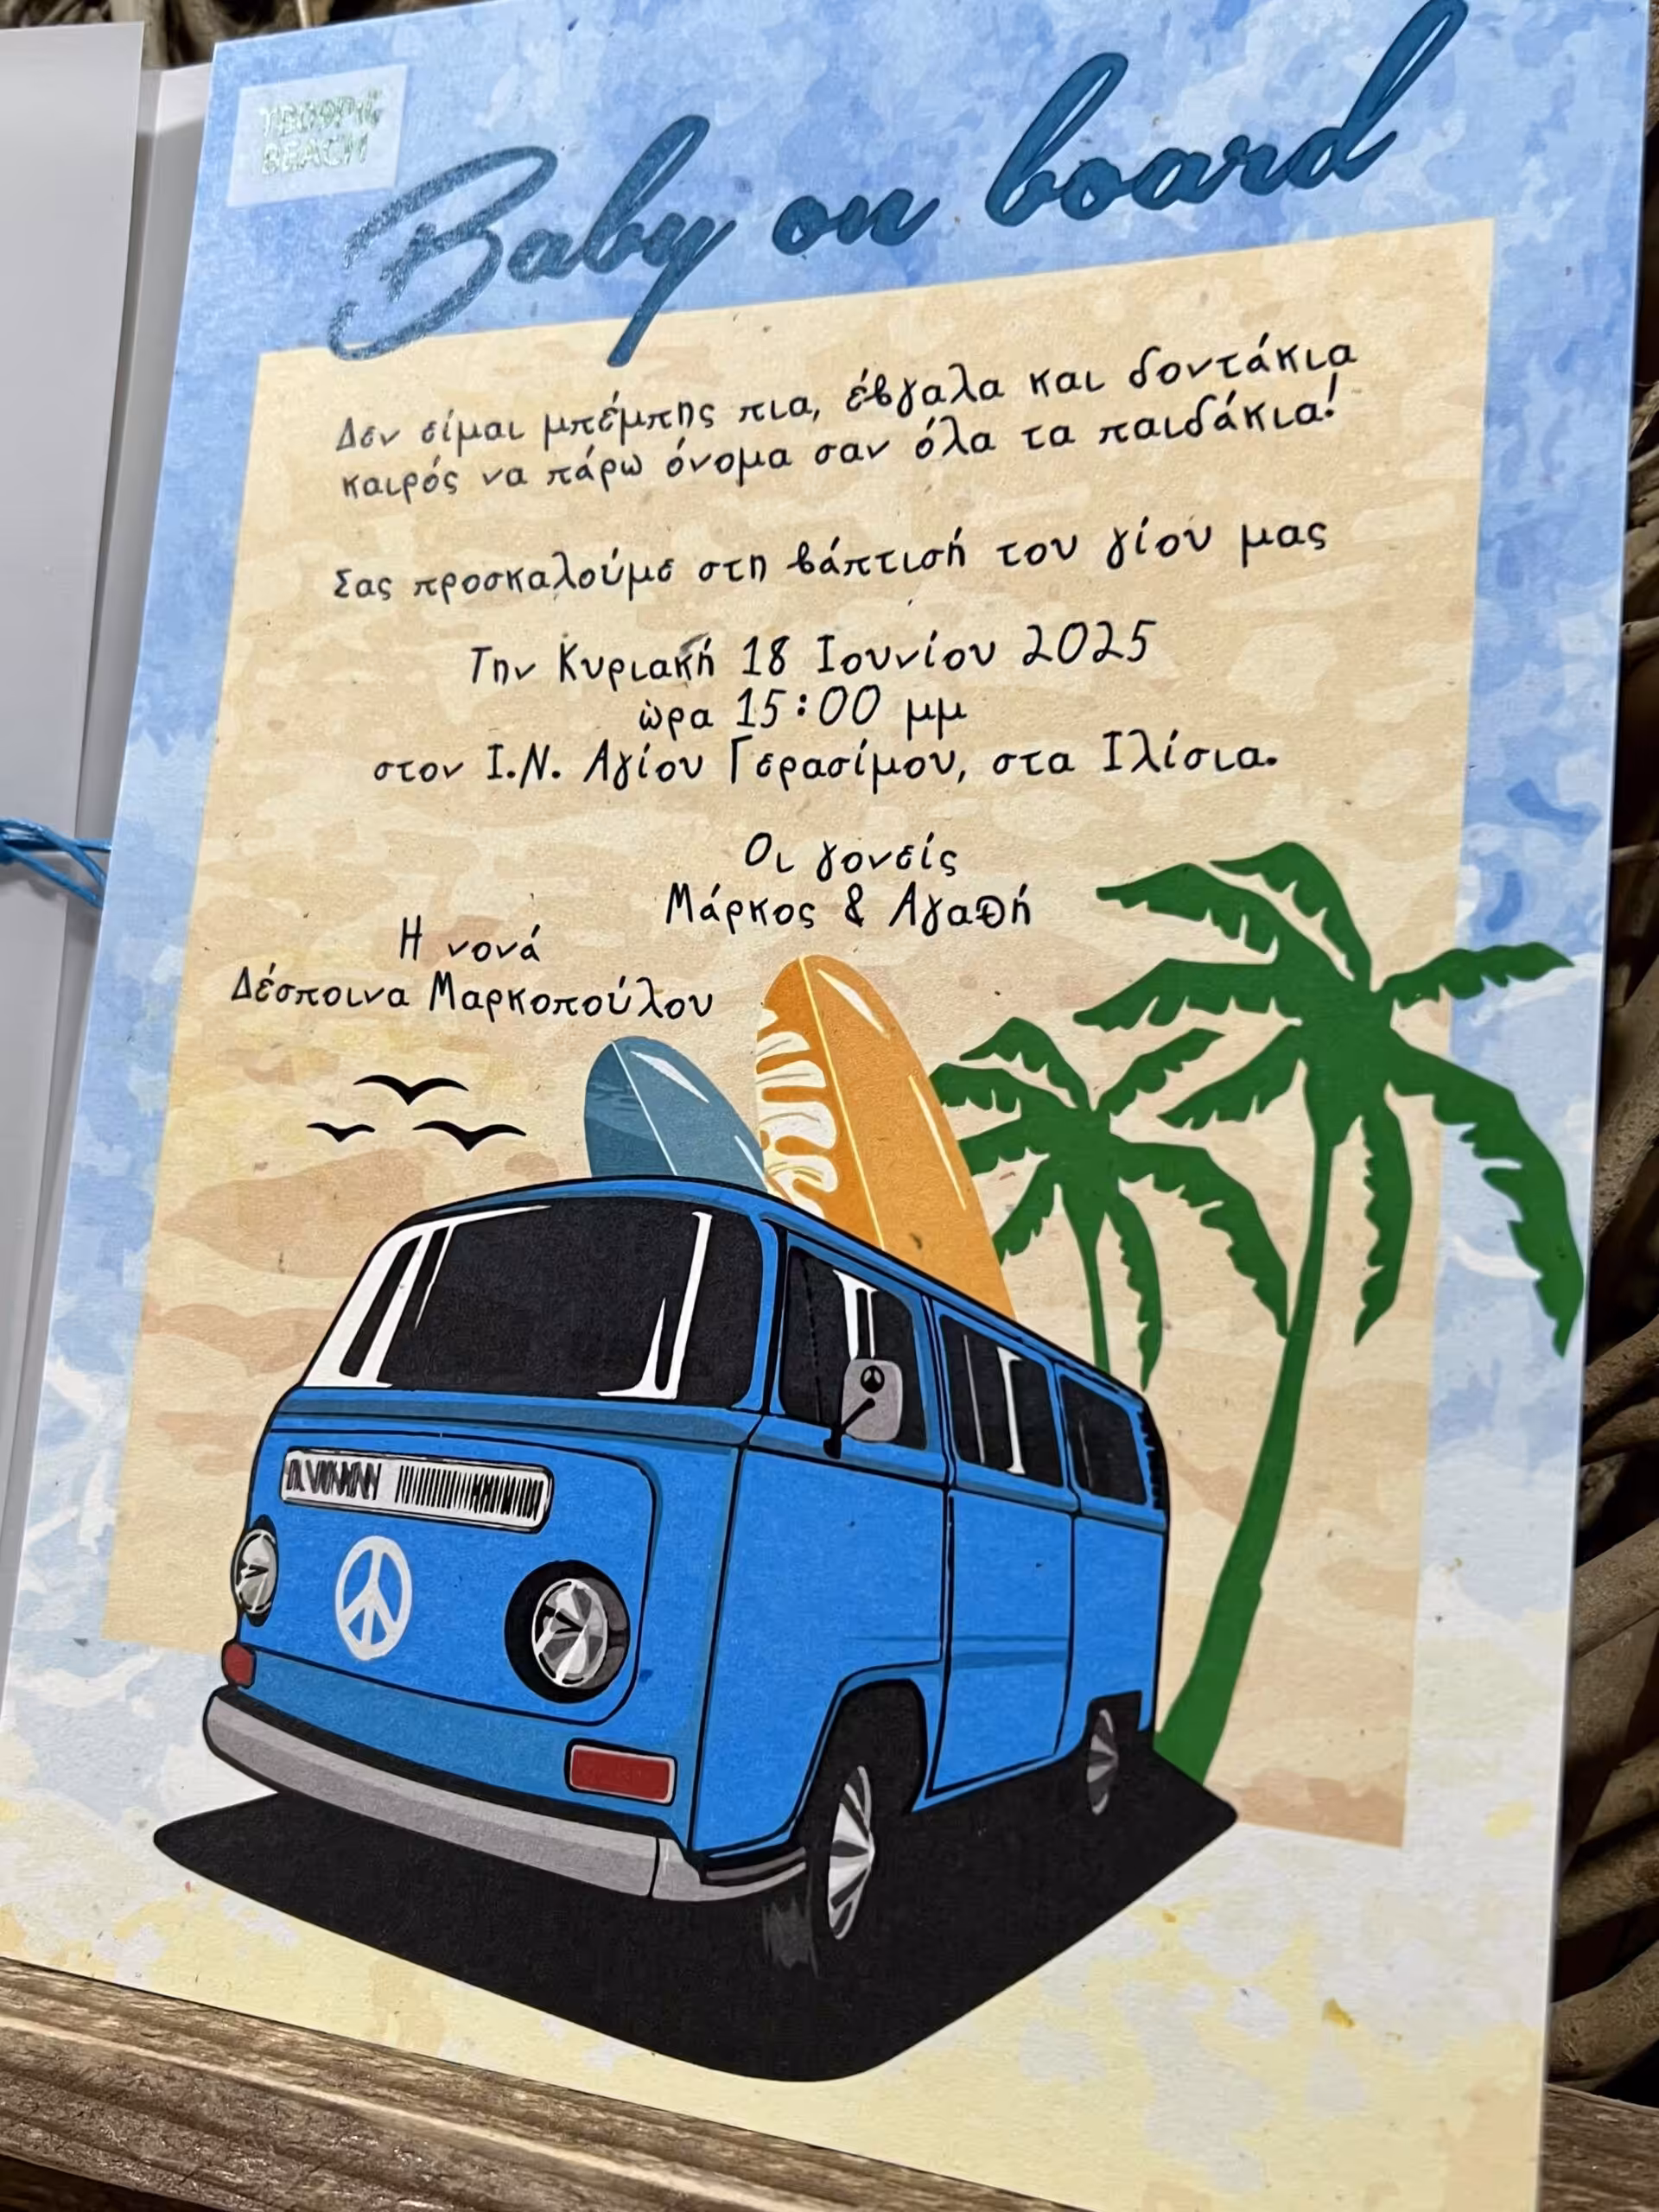 BEACH
Baby on board
Δεν είμαι μπέμπης πια, έβγαλα και δοντάκια
καιρός να πάρω όνομα σαν όλα τα παιδάκια!
Σας προσκαλούμε στη βάπτισή του γίου μας
Την Κυριακή 18 Ιουνίου 2025
ὼρα 15:00 μμ
στον Ι.Ν. Αγίου Γερασίμου, στα Ιλίσια.
Οι γονείς
Μάρκος & Αγαθή
Η νονά
Δέσποινα Μαρκοπούλου